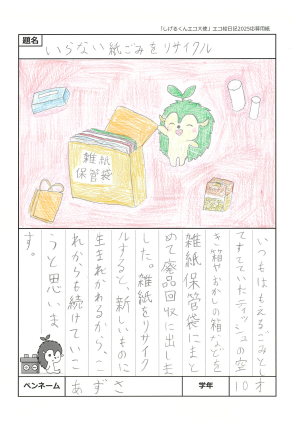 「しげるくんエコ大使」エコ絵日記2025応募用紙
題名
いらない紙ごみをリサイクル
雑紙
保管袋
いつもは、もえるごみとし
てすてていたティッシュの空
き箱やおかしの箱などを
雑紙保管袋にまと
めて廃品回収に出しま
した。雑紙をリサイク
ルすると、新しいものに
生まれかわるから、こ
れからも続けていこ
うと思いま
す。
ペンネーム
あずさ
学年
10才